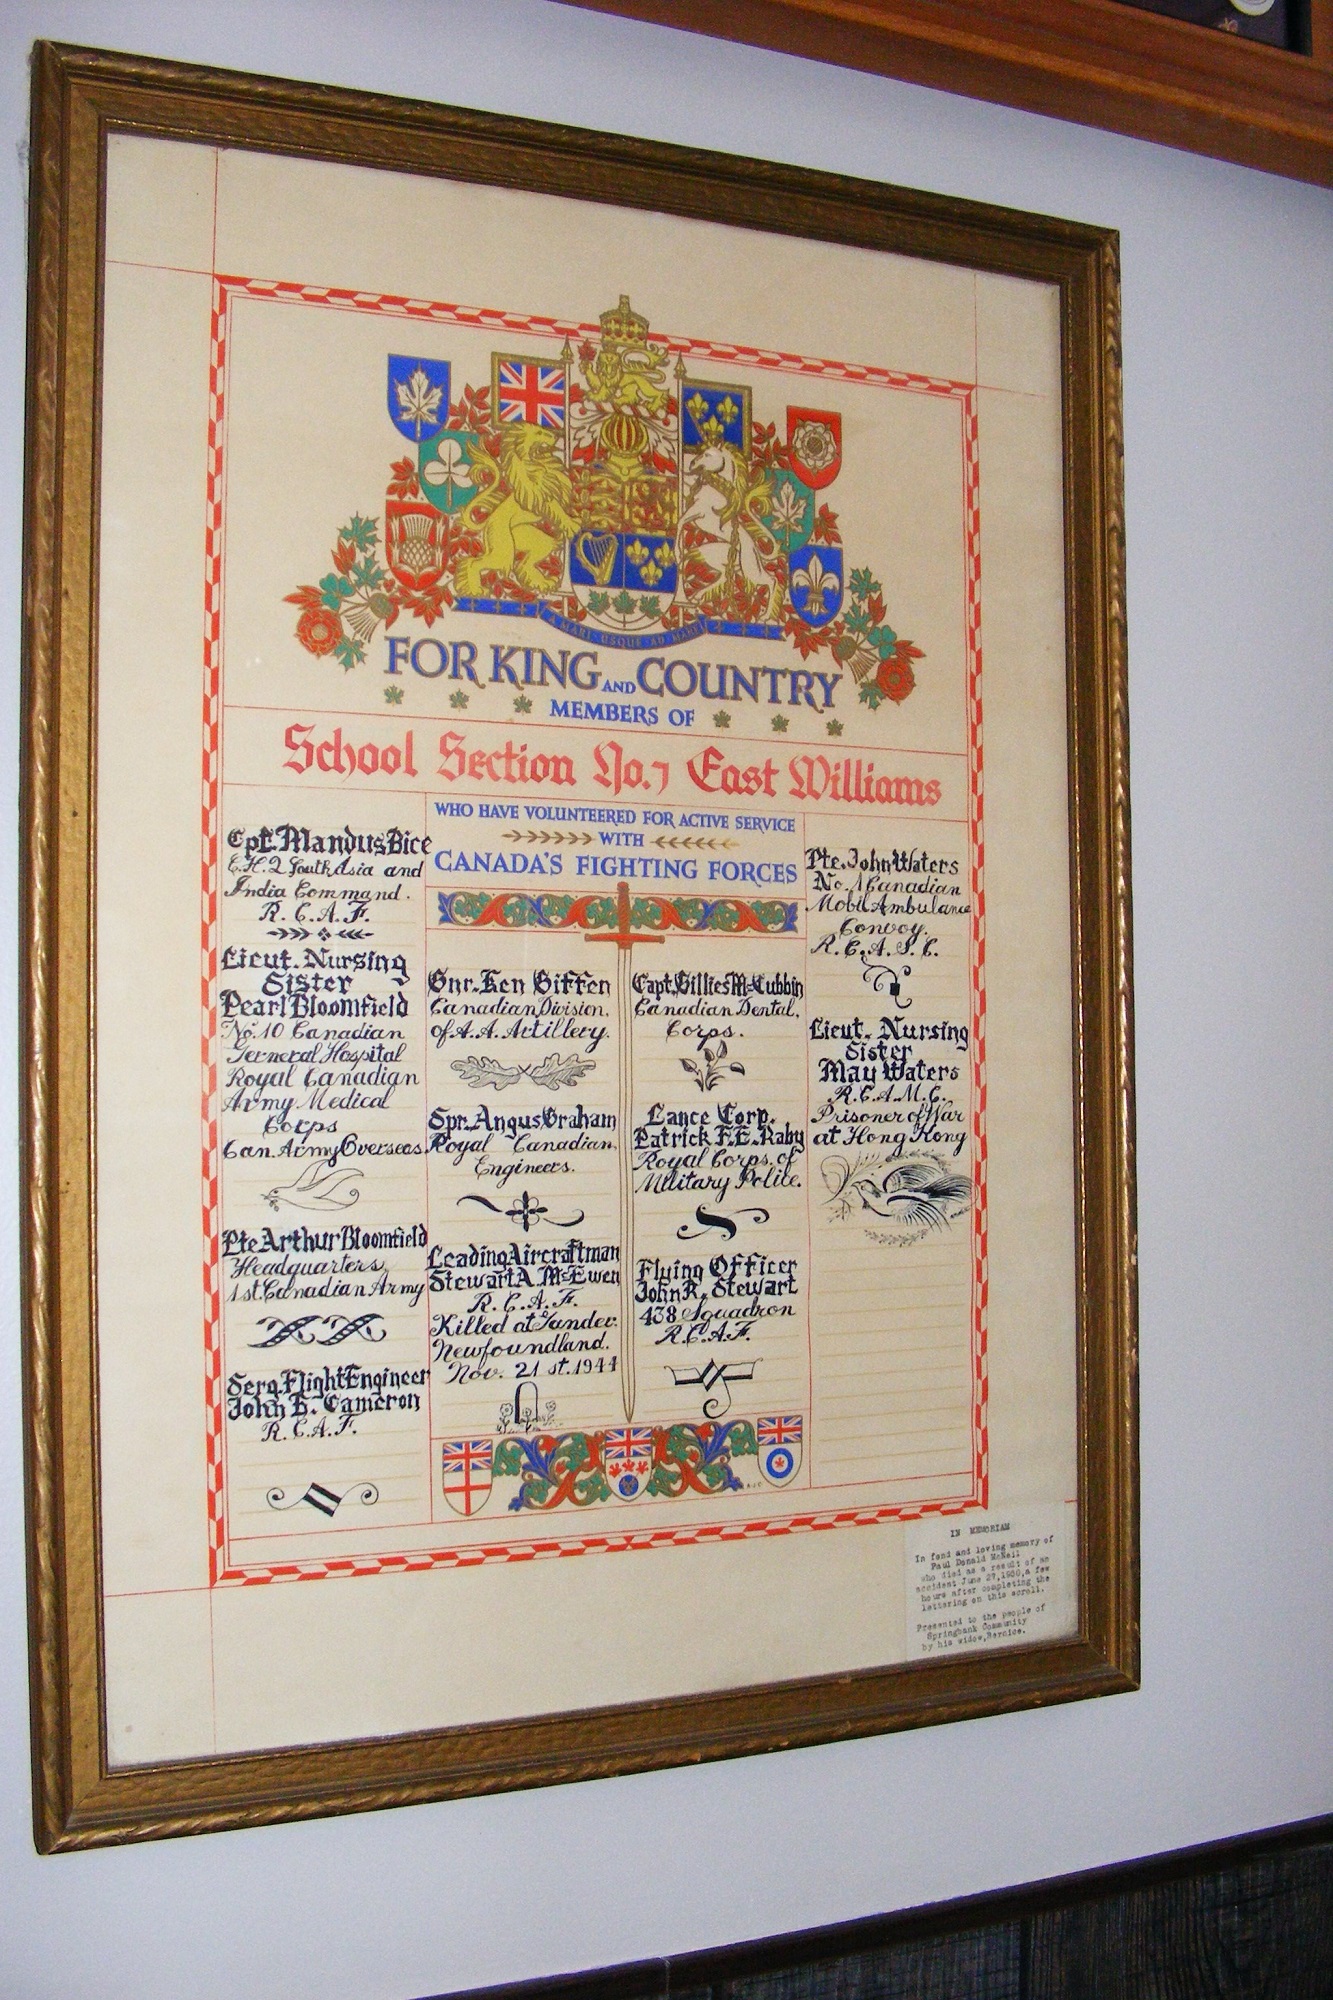 A MARI USQUE AD MARE
FOR KING AND COUNTRY
MEMBERS OF
School Section No. 7 East Williams
WHO HAVE VOLUNTEERED FOR ACTIVE SERVICE
WITH
CANADA'S FIGHTING FORCES
Cpl. Mandus Bice
G.H.Q South Asia and
India Command.
R.C.A.F.
Lieut. Nursing
Sister
Pearl Bloomfield
No. 10 Canadian
General Hospital
Royal Canadian
Army Medical
Corps
Can. Army Overseas.
Pte Arthur Bloomfield
Headquarters
1st. Canadian Army
Serg. Flight Engineer
John E. Cameron
R.C.A.F.
Gnr. Ken Giffen
Canadian Division.
of A.A. Artillery.
Spr. Angus Graham
Royal Canadian
Engineers.
Leading Aircraftman
Stewart A. McEwen
R.C.A.F.
Killed at Gander.
Newfoundland.
Nov. 21st. 1944
Capt. Gillies McCubbin
Canadian Dental.
Corps.
Lance Corp.
Patrick F.E. Raby
Royal Corps. of
Military Police.
Flying Officer
John R. Stewart
438 Squadron
R.C.A.F.
Pte. John Waters
No. 1 Canadian
Mobil Ambulance
Convoy.
R.C.A.S.C.
Lieut. Nursing
Sister
May Waters
R.C.A.M.C.
Prisoner of War
at Hong Kong
IN MEMORIAM
In fond and loving memory of
Paul Donald McNeil
who died as a result of an
accident June 27, 1980, a few
hours after completing the
lettering on this scroll.
Presented to the people of
Springbank Community
by his widow, Bernice.